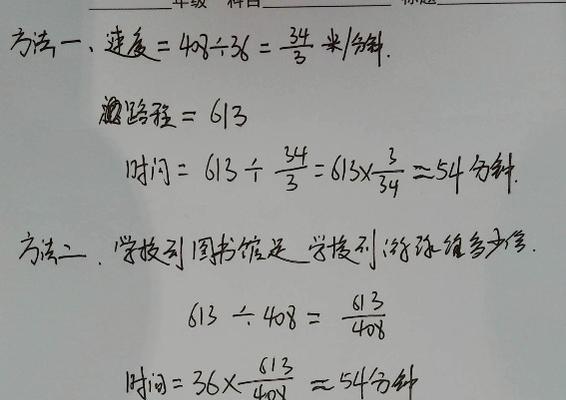 年级 科目 标题
方法一、速度=408÷36=34/3 米/分钟.
路程=613
时间=613÷34/3=613×3/34≈54分钟.
方法二、学校到图书馆是学校到游泳馆多少倍.
613÷408=613/408
时间=36×613/408≈54分钟